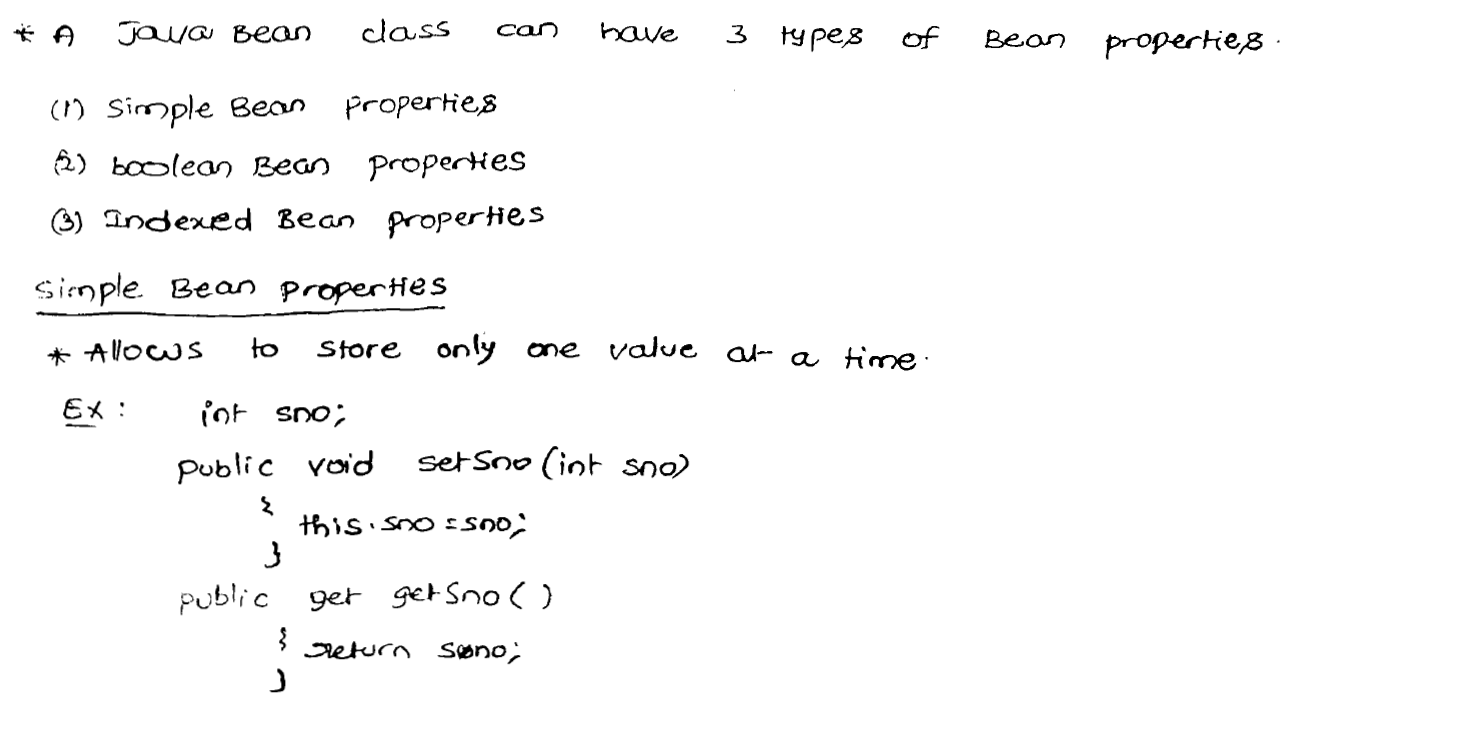 * A Java Bean class can have 3 types of Bean properties.
(1) Simple Bean properties
(2) boolean Bean properties
(3) Indexed Bean properties
Simple Bean properties
* Allows to store only one value at a time.
Ex : int sno;
public void setSno (int sno)
{
this.sno = sno;
}
public get getSno ( )
{ return sno;
}